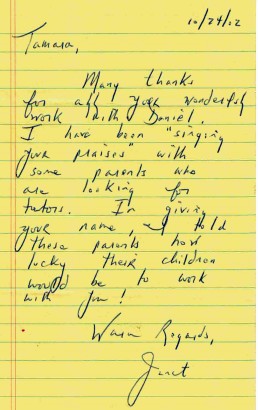 10/24/12
Tamara,
Many thanks
for all your wonderful
work with Daniel.
I have been "singing
your praises" with
some parents who
are looking for
tutors. In giving
your name, I told
these parents how
lucky their children
would be to work
with you!
Warm Regards,
Janet